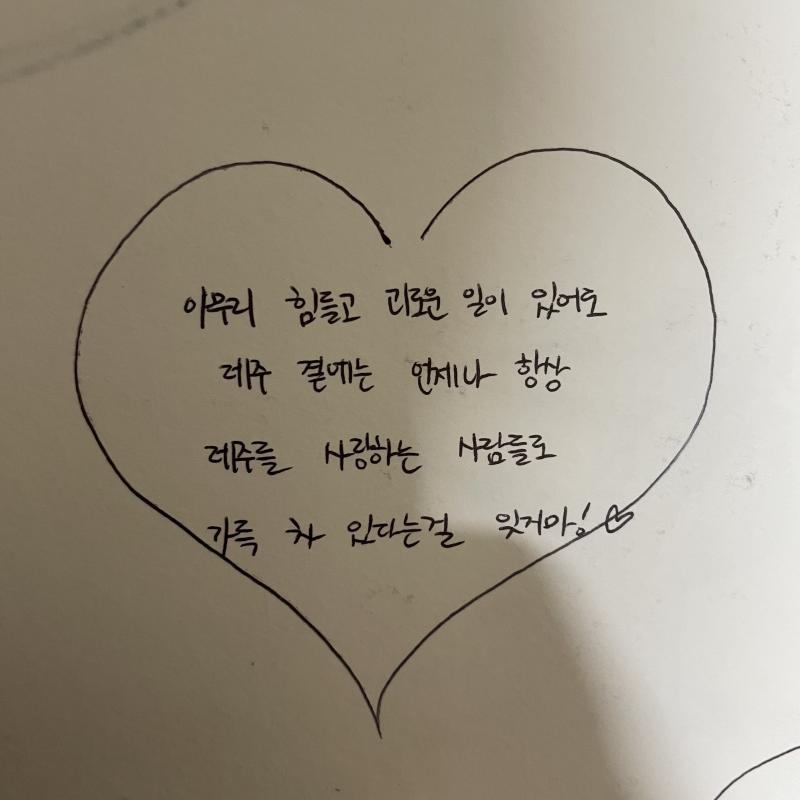 아무리 힘들고 괴로운 일이 있어도
레주 곁에는 언제나 항상
레주를 사랑하는 사람들로
가득 차 있다는걸 잊지마!